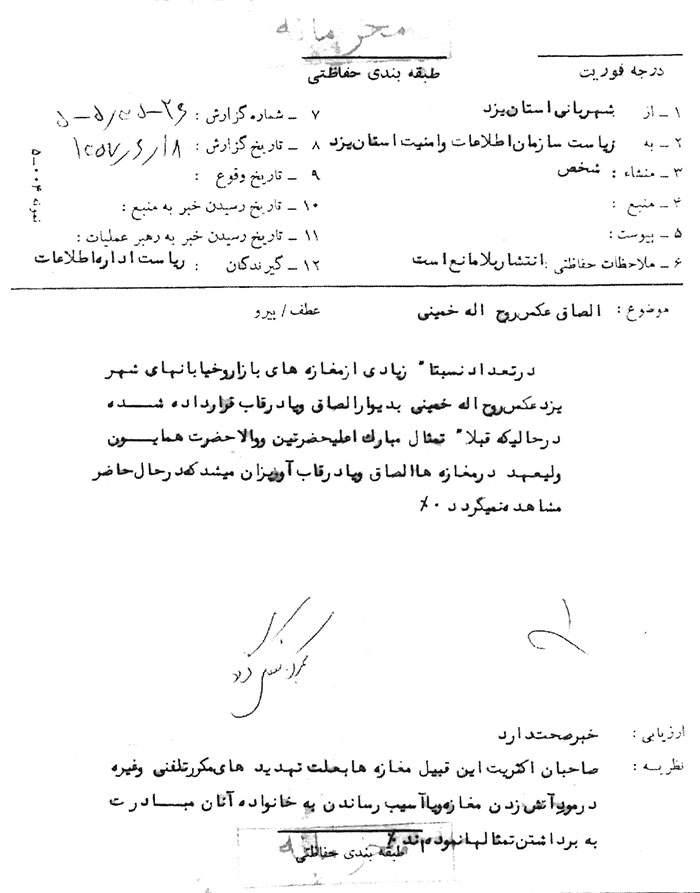 محرمانه
طبقه بندی حفاظتی
درجه فوریت
۱ ـ از شهربانی استان یزد
۲ ـ به ریاست سازمان اطلاعات وامنیت استان یزد
۳ ـ منشاء : شخص
۴ ـ منبع :
۵ ـ پیوست :
۶ ـ ملاحظات حفاظتی : انتشار بلامانع است
۷ ـ شماره گزارش :
۸ ـ تاریخ گزارش : ۱۳۵۷/۶/۱۸
۹ ـ تاریخ وقوع :
۱۰ ـ تاریخ رسیدن خبر به منبع :
۱۱ ـ تاریخ رسیدن خبر به رهبر عملیات :
۱۲ ـ گیرندگان : ریاست اداره اطلاعات
نمونه ۰۰۴ـ۵
موضوع : الصاق عکس روح اله خمینی
عطف / پیرو
در تعداد نسبتا" زیادی از مغازه های بازار وخیابانهای شهر
یزد عکس روح اله خمینی بدیوار الصاق ویا در قاب قرار داده شده
در حالیکه قبلا" تمثال مبارک اعلیحضرتین ووالاحضرت همایون
ولیعهد در مغازه ها الصاق ویا در قاب آویزان میشد که در حال حاضر
مشاهده نمیگردد ۰٪
ارزیابی : خبر صحت دارد
نظریه : صاحبان اکثریت این قبیل مغازه ها بعلت تهدید های مکرر تلفنی وغیره
در مورد آتش زدن مغازه ویا آسیب رساندن به خانواده آنان مبادرت
به برداشتن تمثالها نموده اند ٪
طبقه بندی حفاظتی